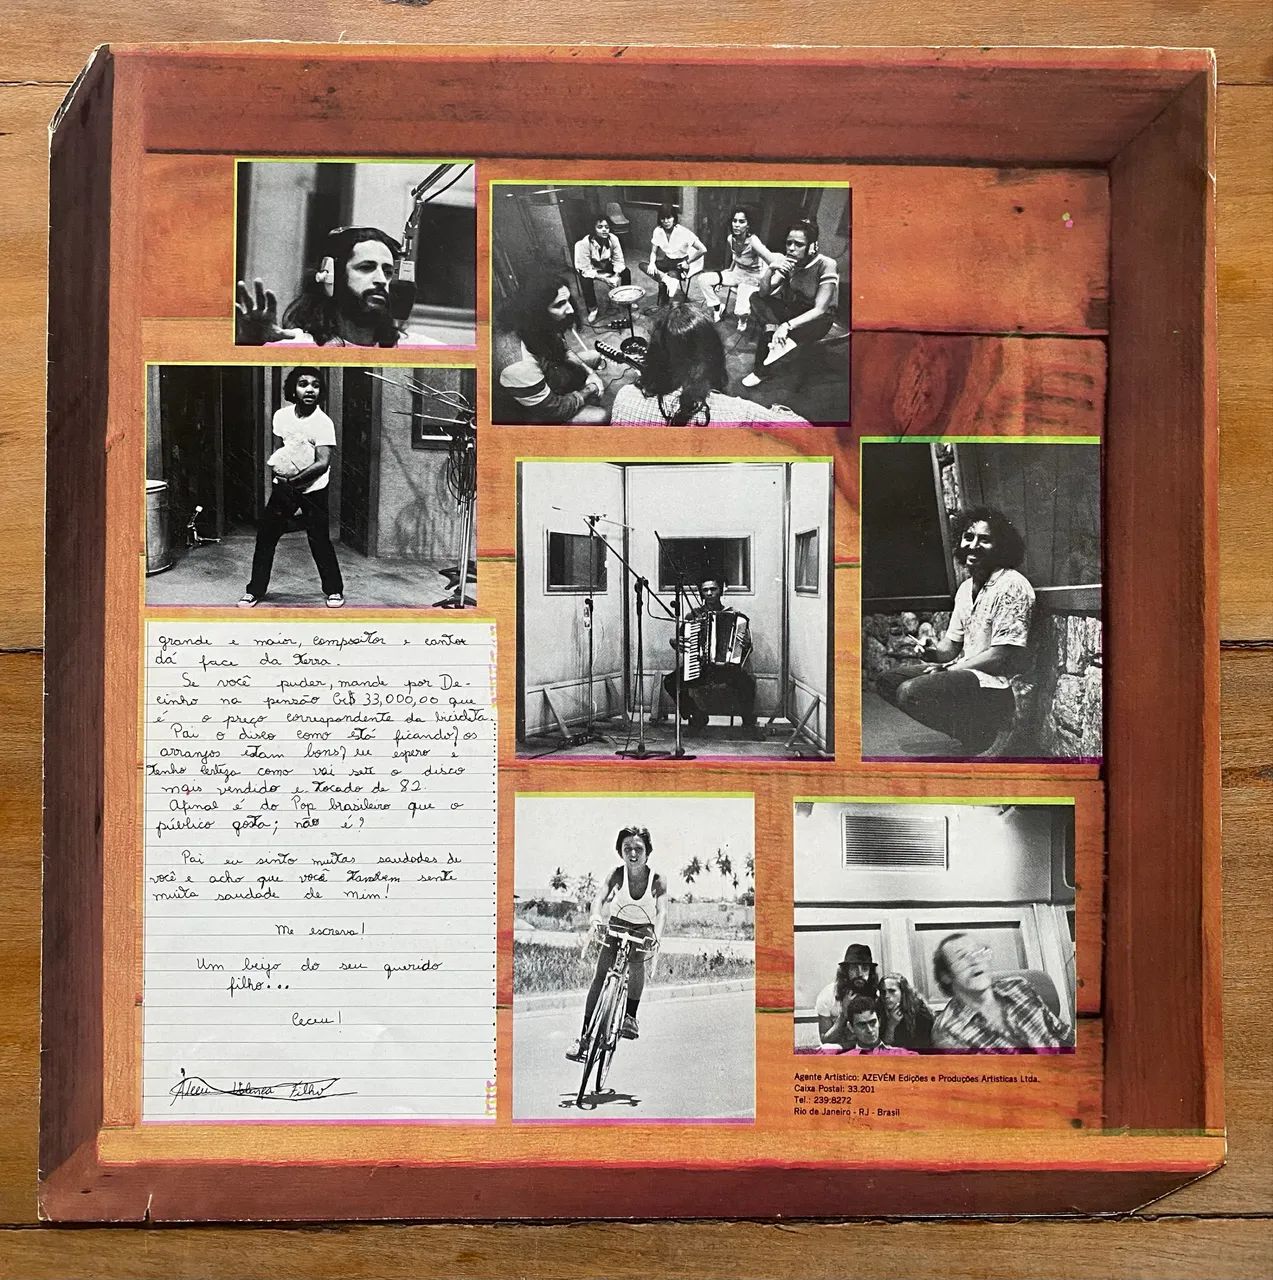 grande e maior, compositor e cantor
dá face da terra.
Se você puder, mande por De-
cinho na pensão Cr$ 33,000,00 que
é o preço correspondente da bicicleta.
Pai o disco como está ficando? os
arranjos estam bons? eu espero e
tenho certeza como vai ser o disco
mais vendido e tocado de 82.
Afinal é do Pop brasileiro que o
público gosta; não é?
Pai eu sinto muitas saudades de
você e acho que você também sente
muita saudade de mim!
Me escreva!
Um beijo do seu querido
filho...
Ceceu!
Alceu Valença Filho
Agente Artístico: AZEVÉM Edições e Produções Artísticas Ltda.
Caixa Postal: 33.201
Tel.: 239:8272
Rio de Janeiro - RJ - Brasil